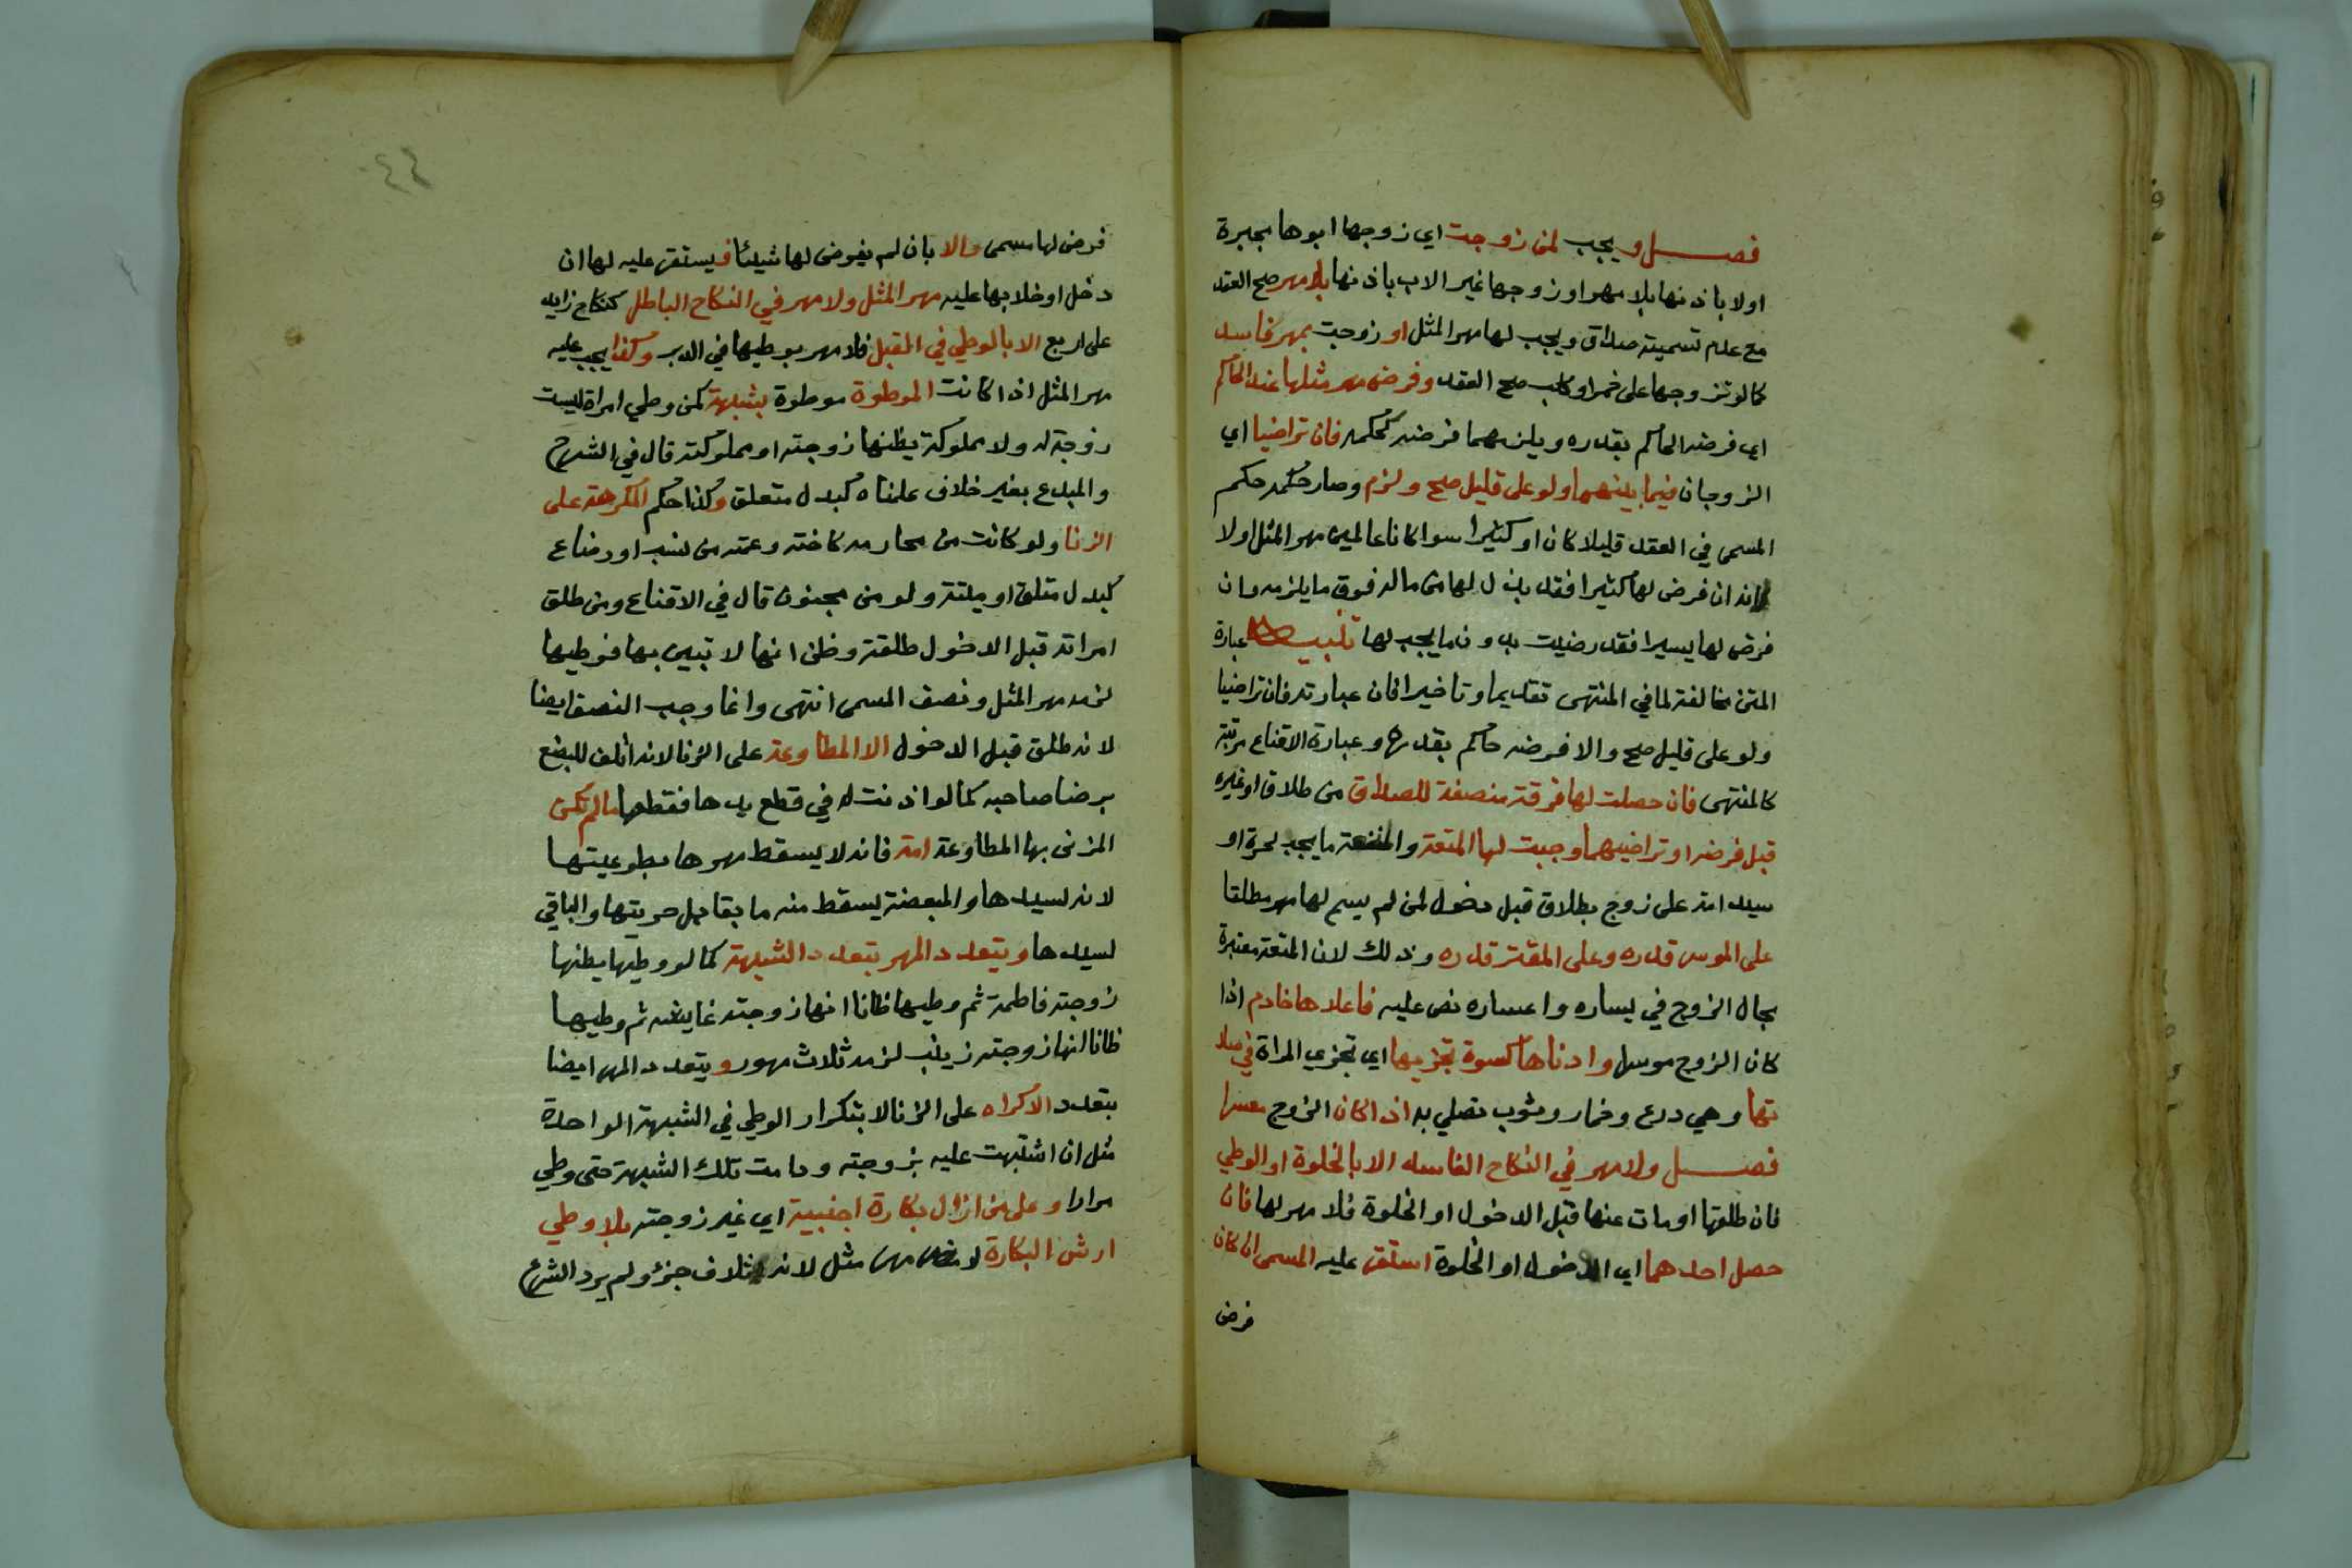 فصل ويجب لمن زوجت اي زوجها ابوها مجبرة
اولا باذنها بلا مهر او زوجها غير الاب باذنها بلا مهر صح العقد
مع عدم تسمية صداق ويجب لها مهر المثل او زوجت بمهر فاسد
كما لو تزوجها على خمر او كلب صح العقد وفرض مهر مثلها عند الحاكم
اي فرضه الحاكم بقدره ويلزمهما فرضه كحكمه فان تراضيا اي
الزوجان فيما بينهما ولو على قليل صح ولزم وصار حكمه حكم
المسمى في العقد قليلا كان او كثيرا سوا كانا عالمين مهر المثل اولا
لانه ان فرض لها كثيرا فقد بذل لها من ماله فوق ما يلزمه وان
فرض لها يسيرا فقد رضيت بدون ما يجب لها تنبيه عبارة
المتن مخالفة لما في المنتهى تقديما وتاخيرا فان عبارته فان تراضيا
ولو على قليل صح والا فرضه حاكم بقدره وعبارة الاقناع مرتبة
كالمنتهى فان حصلت لها فرقة منصفة للصداق من طلاق او غيره
قبل فرضه او تراضيهما وجبت لها المتعة والمتعة ما يجب لحرة او
سيد امة على زوج بطلاق قبل دخول لمن لم يسم لها مهر مطلقا
على الموسر قدره وعلى المقتر قدره وذلك لان المتعة معتبرة
بحال الزوج في يساره واعساره نص عليه فاعلاها خادم اذا
كان الزوج موسرا وادناها كسوة تجزيها اي تجزي المراة في صلا
تها وهي درع وخمار وثوب تصلي به اذا كان الزوج معسرا
فصل ولا مهر في النكاح الفاسد الا بالخلوة او الوطي
فان طلقها او مات عنها قبل الدخول او الخلوة فلا مهر لها فان
حصل احدهما اي الدخول او الخلوة استقر عليه المسمى ان كان
فرض
فرض لها مسمى والا بان لم يفرض لها شيئا فيستقر عليه لها ان
دخل او خلا بها عليه مهر المثل ولا مهر في النكاح الباطل كنكاح زايد
على اربع الا بالوطي في القبل فلا مهر بوطيها في الدبر وكذا يجب عليه
مهر المثل اذا كانت الموطوة موطوة بشبهة كمن وطي امراة ليست
زوجة له ولا مملوكة يظنها زوجته او مملوكته قال في الشرح
والمبدع بغير خلاف علمناه كبدل متعلق وكذا حكم المكرهة على
الزنا ولو كانت من محارمه كاخته وعمته من نسب او رضاع
كبدل متلق او ميتة ولو من مجنون قال في الاقناع ومن طلق
امراته قبل الدخول طلقة وظن انها لا تبين بها فوطيها
لزمه مهر المثل ونصف المسمى انتهى وانما وجب النصف ايضا
لانه طلق قبل الدخول الا المطاوعة على الزنا لانه اتلف للبضع
برضا صاحبه كما لو اذنت له في قطع يدها فقطعها ما لم تكن
المزنى بها المطاوعة امة فانه لا يسقط مهرها بطوعيتها
لانه لسيدها والمبعضة يسقط منه ما يقابل حريتها والباقي
لسيدها ويتعدد المهر بتعدد الشبهة كما لو وطيها يظنها
زوجته فاطمة ثم وطيها ظانا انها زوجته عايشه ثم وطيها
ظانا انها زوجته زينب لزمه ثلاث مهور ويتعدد المهر ايضا
بتعدد الاكراه على الزنا لا بتكرار الوطي في الشبهة الواحدة
مثل ان اشتبهت عليه بزوجته ودامت تلك الشبهة حتى وطي
مرارا وعلى من ازال بكارة اجنبية اي غير زوجته بلا وطي
ارش البكارة لا مهر مثل لانه اتلاف جزؤ ولم يرد الشرع